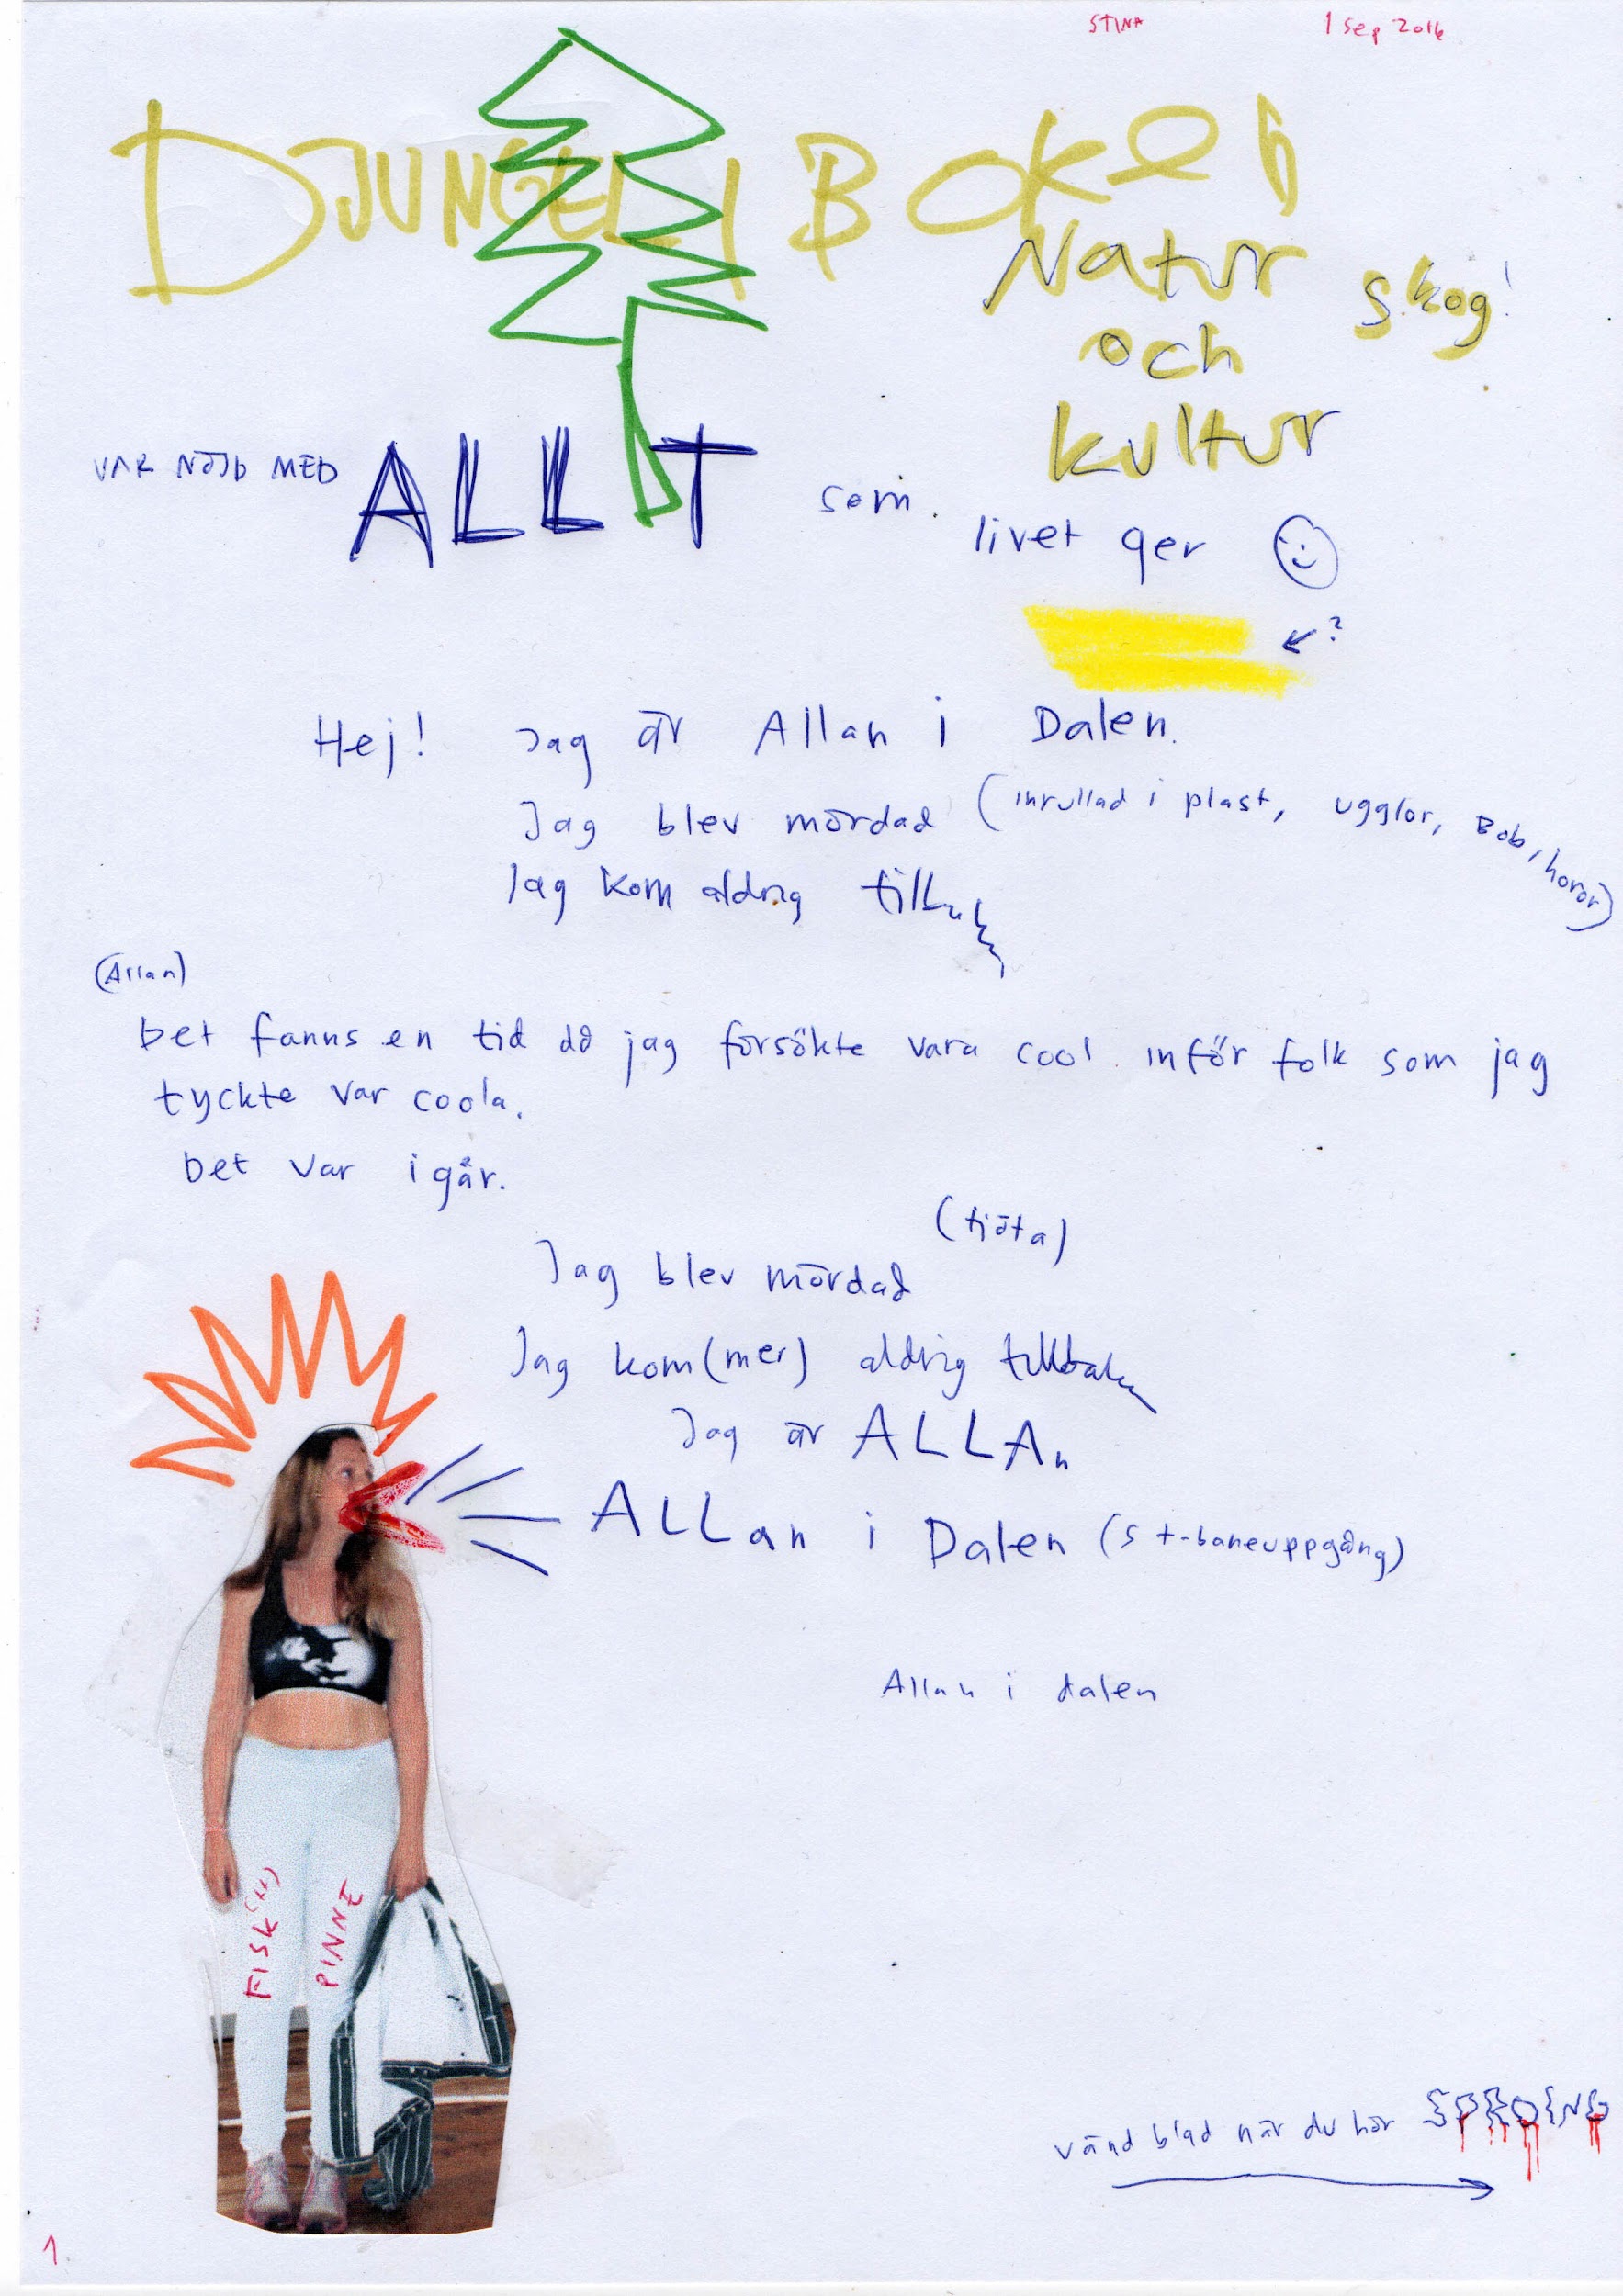 STINA 1 Sep 2016
DJUNGEL BOKEN
Natur skog!
och
kultur
VAR NÖJD MED ALLT som.
livet ger
?
Hej! Jag är Allan i Dalen.
Jag blev mördad (inrullad i plast, ugglor, Bob, horor)
Jag kom aldrig
(Allan)
Det fanns en tid då jag försökte vara cool inför folk som jag
tyckte var coola.
Det var igår.
(tjöta)
Jag blev mördad
Jag kom(mer) aldrig tillbaka
Jag är ALLAn
ALLan i Dalen (s t-baneuppgång)
Allan i dalen
FISK
PINNE
vänd blad när du hör SPROING
1